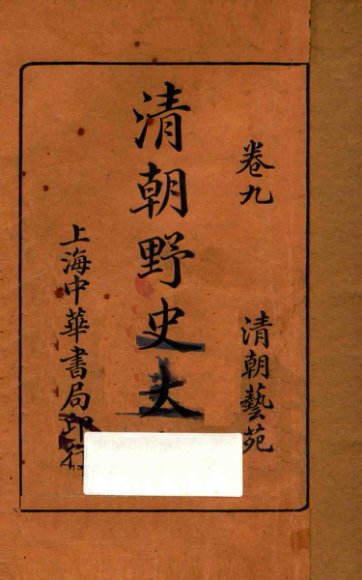 卷九
清朝藝苑
清朝野史大
上海中華書局印行